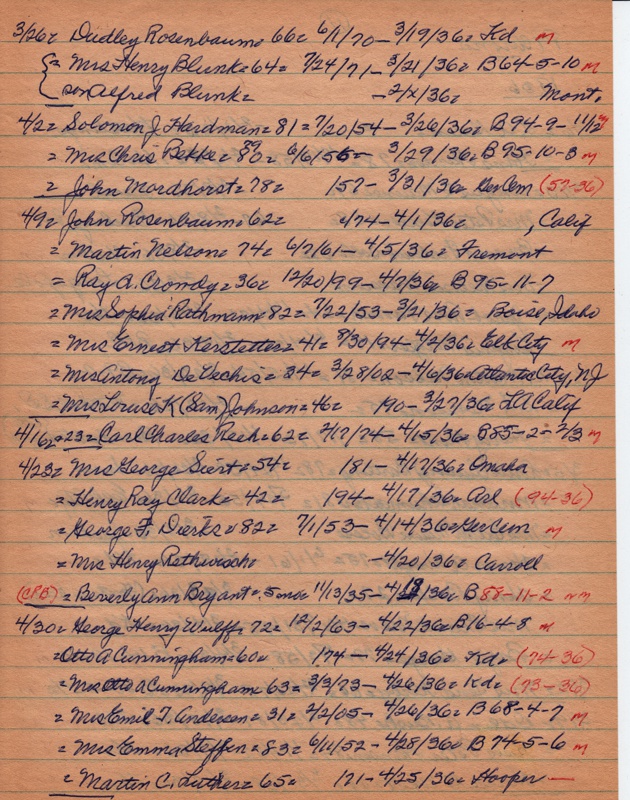 3/26= Dudley Rosenbaum= 66= 6/1/70- 3/19/36= Kd m
{= Mrs Henry Blunk= 64= 7/24/71- 3/21/36= B64-5-10 m
son Alfred Blunk= -2/x/36= Mont.
4/2= Solomon J. Hardman= 81= 7/20/54- 3/26/36= B94-9-11/12 m
= Mrs Chris Bekke= 80= 6/6/56- 3/29/36= B95-10-3 m
= John Mordhorst= 78= 157- 3/31/36= GerCem (57-36)
4/9= John Rosenbaum= 62= 174-4/1/36= , Calif
= Martin Nelson= 74= 6/7/61- 4/5/36= Fremont
= Ray A. Crondy= 36= 12/20/99- 4/7/36= B95-11-7
= Mrs Sophia Rathmann= 82= 7/22/53- 3/21/36= Boise, Idaho
= Mrs Ernest Kerstetter= 41= 8/30/94- 4/2/36= Elk City m
= Mrs Antony DeVechis= 34= 3/28/02- 4/6/36= Atlantic City, NJ
= Mrs Louise K (Sam) Johnson= 46= 190- 3/27/36= LA Calif
4/16= 23= Carl Charles Rech= 62= 2/17/74- 4/15/36= B85-2=2/3 m
4/23= Mrs George Siert= 54= 181- 4/17/36= Omaha
= Henry Ray Clark= 42= 194- 4/17/36= Arl (94-36)
= George F. Dierks= 82= 7/1/53- 4/14/36= GerCem m
= Mrs Henry Rethwisch= -4/20/36= Carroll
(CPB) = Beverly Ann Bryant= 5mo= 11/13/35- 4/18/36= B 88-11-2 nm
4/30= George Henry Wulff= 72= 12/2/63- 4/22/36= B16-4-8 m
= Otto A Cunningham= 60= 174- 4/24/36= Kd= (74-36)
= Mrs Otto A Cunningham= 63= 3/3/73- 4/26/36= Kd= (73-36)
= Mrs Emil T. Anderson= 31= 2/2/05- 4/26/36= B68-4-7 m
= Mrs Emma Steffen= 83= 6/11/52- 4/28/36= B74-5-6 m
= Martin C. Luther= 65= 171- 4/25/36= Hooper -